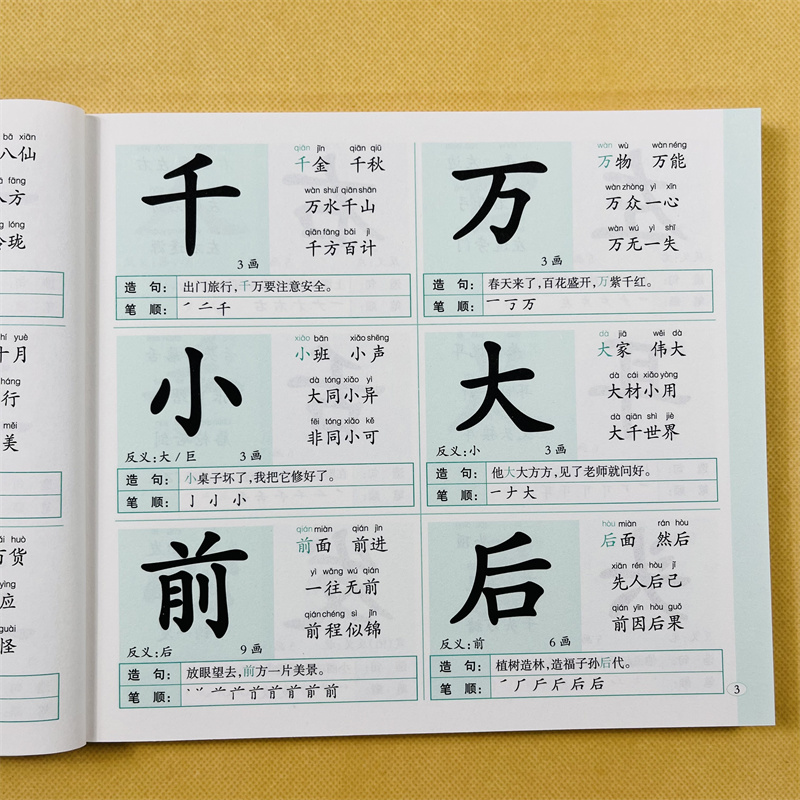 bā xiān
八仙
fāng
八方
lóng
玲珑
yuè
十月
háng
行
měi
美
huò
百货
yìng
应
guài
怪
千
3画
qiān jīn qiān qiū
千金 千秋
wàn shuǐ qiān shān
万水千山
qiān fāng bǎi jì
千方百计
造句: 出门旅行,千万要注意安全。
笔顺: ㇒ 二 千
万
3画
wàn wù wàn néng
万物 万能
wàn zhòng yì xīn
万众一心
wàn wú yì shī
万无一失
造句: 春天来了,百花盛开,万紫千红。
笔顺: 一 丆 万
小
反义:大/巨 3画
xiǎo bān xiǎo shēng
小班 小声
dà tóng xiǎo yì
大同小异
fēi tóng xiǎo kě
非同小可
造句: 小桌子坏了,我把它修好了。
笔顺: 亅 小 小
大
反义:小 3画
dà jiā wěi dà
大家 伟大
dà cái xiǎo yòng
大材小用
dà qiān shì jiè
大千世界
造句: 他大大方方,见了老师就问好。
笔顺: 一 ナ 大
前
反义:后 9画
qián miàn qián jìn
前面 前进
yì wǎng wú qián
一往无前
qián chéng sì jǐn
前程似锦
造句: 放眼望去,前方一片美景。
笔顺: 前 前
后
反义:前 6画
hòu miàn rán hòu
后面 然后
xiān rén hòu jǐ
先人后己
qián yīn hòu guǒ
前因后果
造句: 植树造林,造福子孙后代。
笔顺: ㇒ 厂 后 后
3